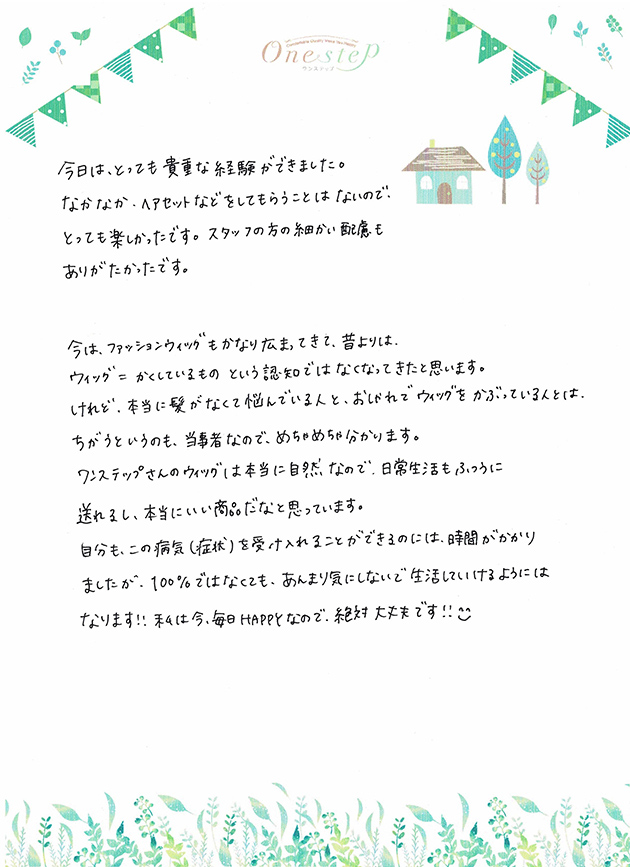 Onestep
ワンステップ
今日は、とっても貴重な経験ができました。
なかなか、ヘアセットなどをしてもらうことはないので、
とっても楽しかったです。スタッフの方の細かい配慮も
ありがたかったです。
今は、ファッションウィッグもかなり広まってきて、昔よりは、
ウィッグ=かくしているものという認知ではなくなってきたと思います。
けれど、本当に髪がなくて悩んでいる人と、おしゃれでウィッグをかぶっている人とは、
ちがうというのも、当事者なので、めちゃめちゃ分かります。
ワンステップさんのウィッグは本当に自然なので、日常生活もふつうに
送れるし、本当にいい商品だなと思っています。
自分も、この病気(症状)を受け入れることができるのには、時間がかかり
ましたが、100%ではなくても、あんまり気にしないで生活していけるようには
なります!!私は今、毎日HAPPYなので、絶対大丈夫です!!